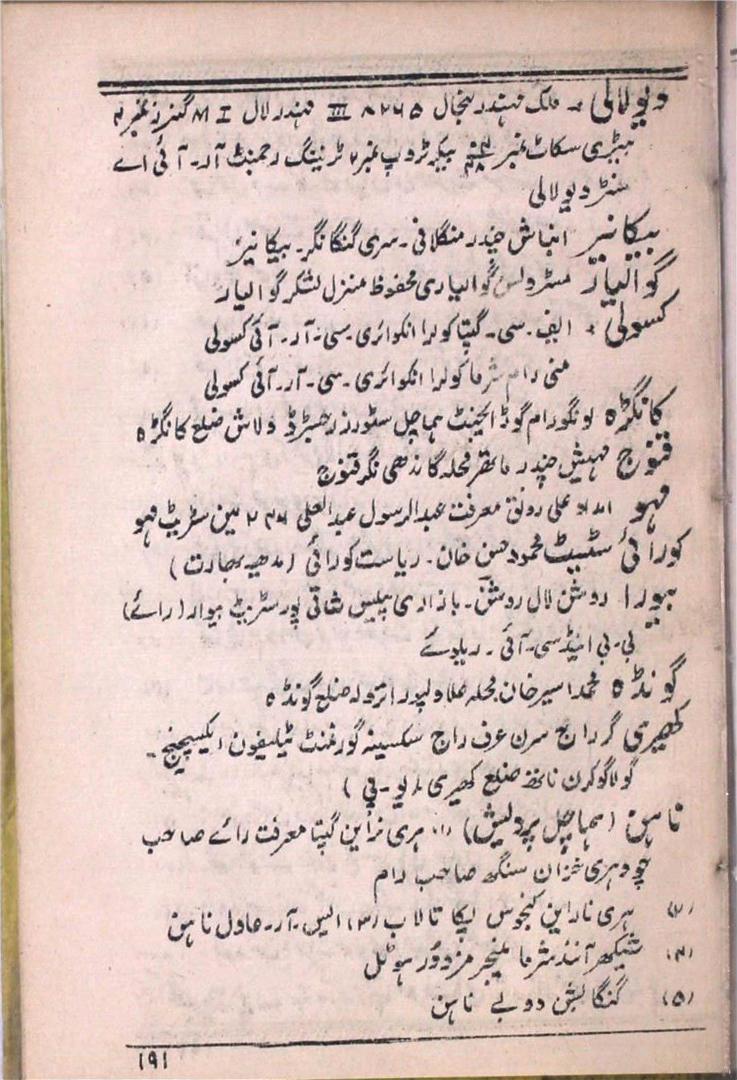 دیولالی * ملک مہندر سنجال ۸۲۶۵ III مہندر لال M I گنرز نمبر ۲
بیٹری سکاٹ نمبر بیکر ٹروپ نمبر ۷ ٹریننگ رجمنٹ آر۔ آئی اے
سنٹر دیولالی
بیکانیر ابناش چندر منگلانی۔ سری گنگا نگر۔ بیکانیر
گوالیار مسٹر ولسن گوالیاری محفوظ منزل لشکر گوالیار
کسولی * ایف۔ سی۔ گپتا کولرا انکوائری۔ سی۔ آر۔ آئی کسولی
منی رام شرما کولرا انکوائری۔ سی۔ آر۔ آئی کسولی
کانگڑہ لونگو رام گوڈ ایجنٹ ہماچل سٹورز رجسٹرڈ دلاش ضلع کانگڑہ
قنوج مہیش چندر ماتھر محلہ گاندھی نگر قنوج
مہو امداد علی رونق معرفت عبدالرسول عبدالعلی ۲۴۶ مین سٹریٹ مہو
کورائی سٹیٹ محمود حسن خان۔ ریاست کورائی (مدھیہ بھارت)
بیورا۔ روشن لال روشن۔ بازاری پلیس شانتی پور سٹریٹ بیوار (رائے)
بی۔ بی اینڈ سی۔ آئی۔ ریلوے
گونڈہ محمد اسیر خان محلہ علاولپور اترولہ ضلع گونڈہ
کھیری گر راج سرن عرف راج سکسینہ گورنمنٹ ٹیلیفون ایکسچینج۔
گولا گوکرن ناتھ ضلع کھیری (یو۔ پی)
ناہن (ہماچل پردیش) (۱) ہری نراین گپتا معرفت رائے صاحب
چودہری خزان سنگھ صاحب رام
(۲) ہری نارائن کنجوس پکا تالاب (۳) ایس۔ آر۔ عادل ناہن
(۴) شیکھر آنند شرما منیجر مزدور ہوٹل
(۵) گنگا بشن دوبے ناہن
۱۹۱